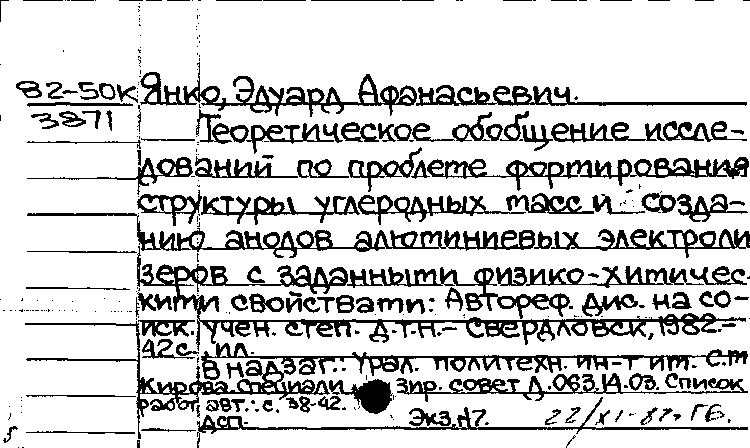 82-50к Янко, Эдуард Афанасьевич.
3871 Теоретическое обобщение иссле-
дований по проблеме формирования
структуры углеродных масс и созда-
нию анодов алюминиевых электроли
зеров с заданными физико-химичес-
кими свойствами: Автореф. дис. на со-
иск. учен. степ. д.т.н.- Свердловск, 1982.-
42с., ил.
В надзаг.: Урал. политехн. ин-т им. С.М
Кирова. Специали зир. совет Д.063.14.03. Список
работ авт.: с. 38-42.
ДСП. Экз.№7. 22/XI-82г.